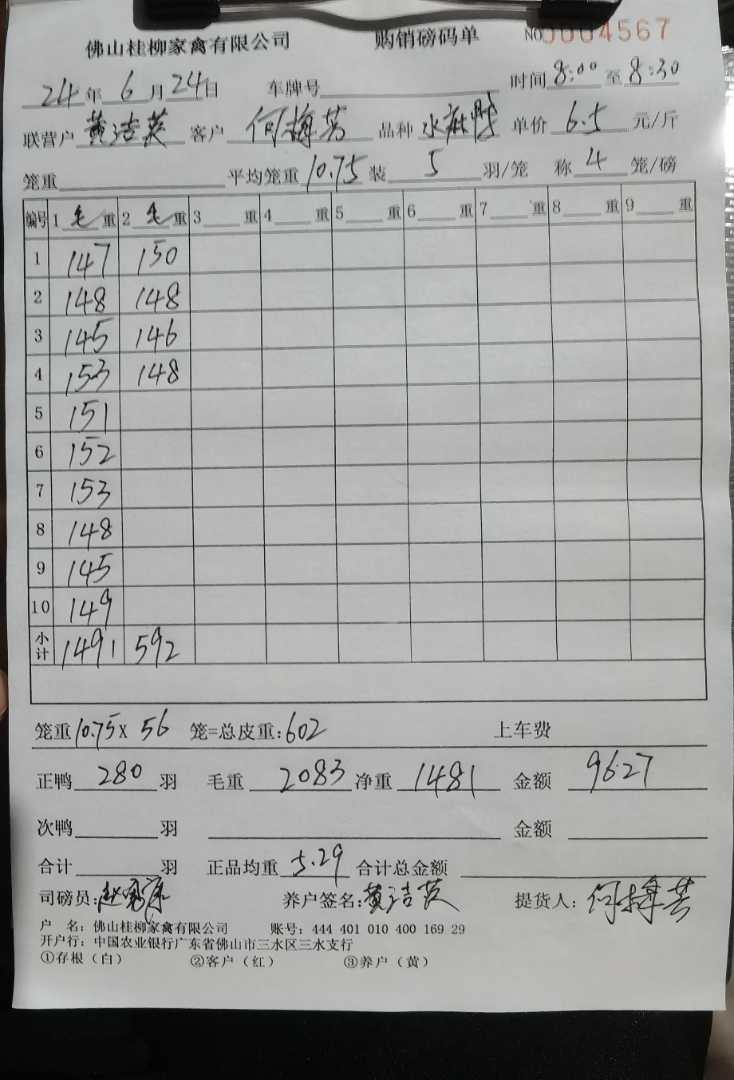 佛山桂柳家禽有限公司 购销磅码单 NO 0004567
24年6月24日 车牌号 时间8:00至8:30
联营户 黄洁英 客户 何梅芳 品种 水麻鸭 单价 6.5 元/斤
笼重 平均笼重 10.75 装 5 羽/笼 称 4 笼/磅
编号 1 毛 重 2 毛 重 3 重 4 重 5 重 6 重 7 重 8 重 9 重
1 147 150
2 148 148
3 145 146
4 153 148
5 151
6 152
7 153
8 148
9 145
10 149
小计 1491 592
笼重 10.75 x 56 笼=总皮重:602 上车费
正鸭 280 羽 毛重 2083 净重 1481 金额 9627
次鸭 羽 金额
合计 羽 正品均重 5.29 合计总金额
司磅员: 养户签名:黄洁英 提货人:何梅芳
户 名:佛山桂柳家禽有限公司 账号:444 401 010 400 169 29
开户行:中国农业银行广东省佛山市三水区三水支行
①存根(白) ②客户(红) ③养户(黄)